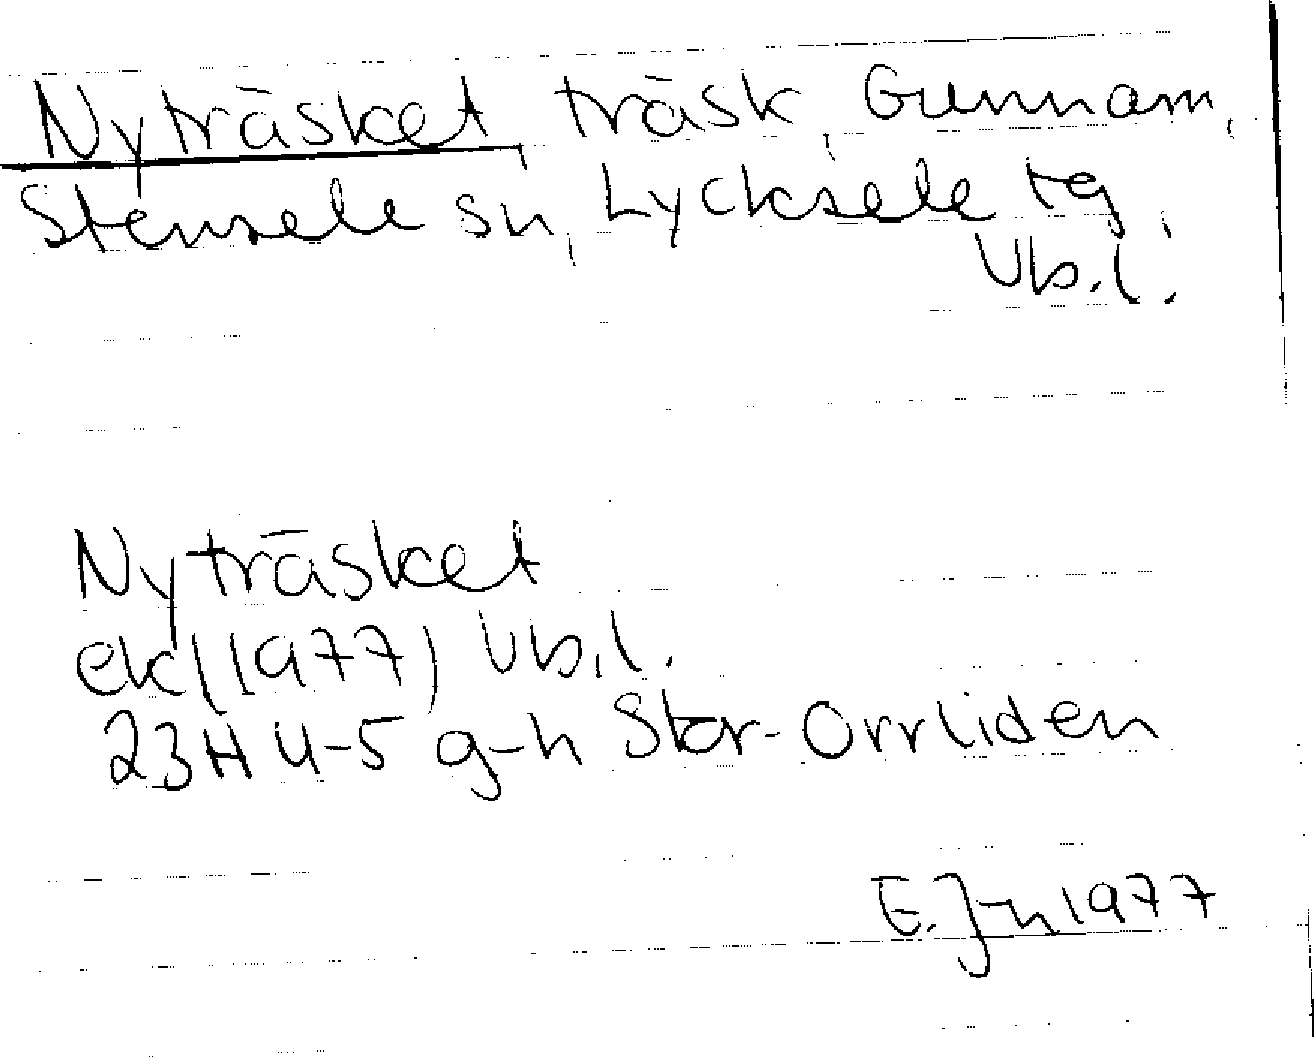 Nyträsket, träsk, Gunnarn,
Stensele sn, Lycksele tg,
Vb.l.
Nyträsket
ek(1977) Vb.l.
23H 4-5 g-h Stor-Orrliden
E. J-n 1977